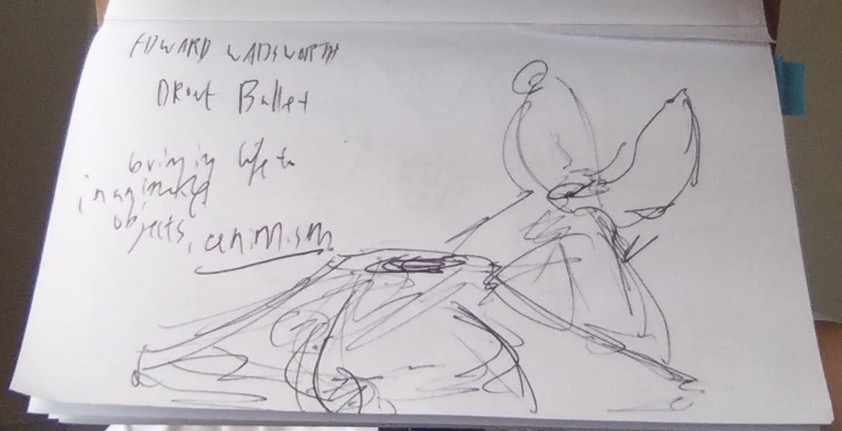 EDWARD WADSWORTH
DRouT Ballet
bringing life to
inaginated
objects, animism